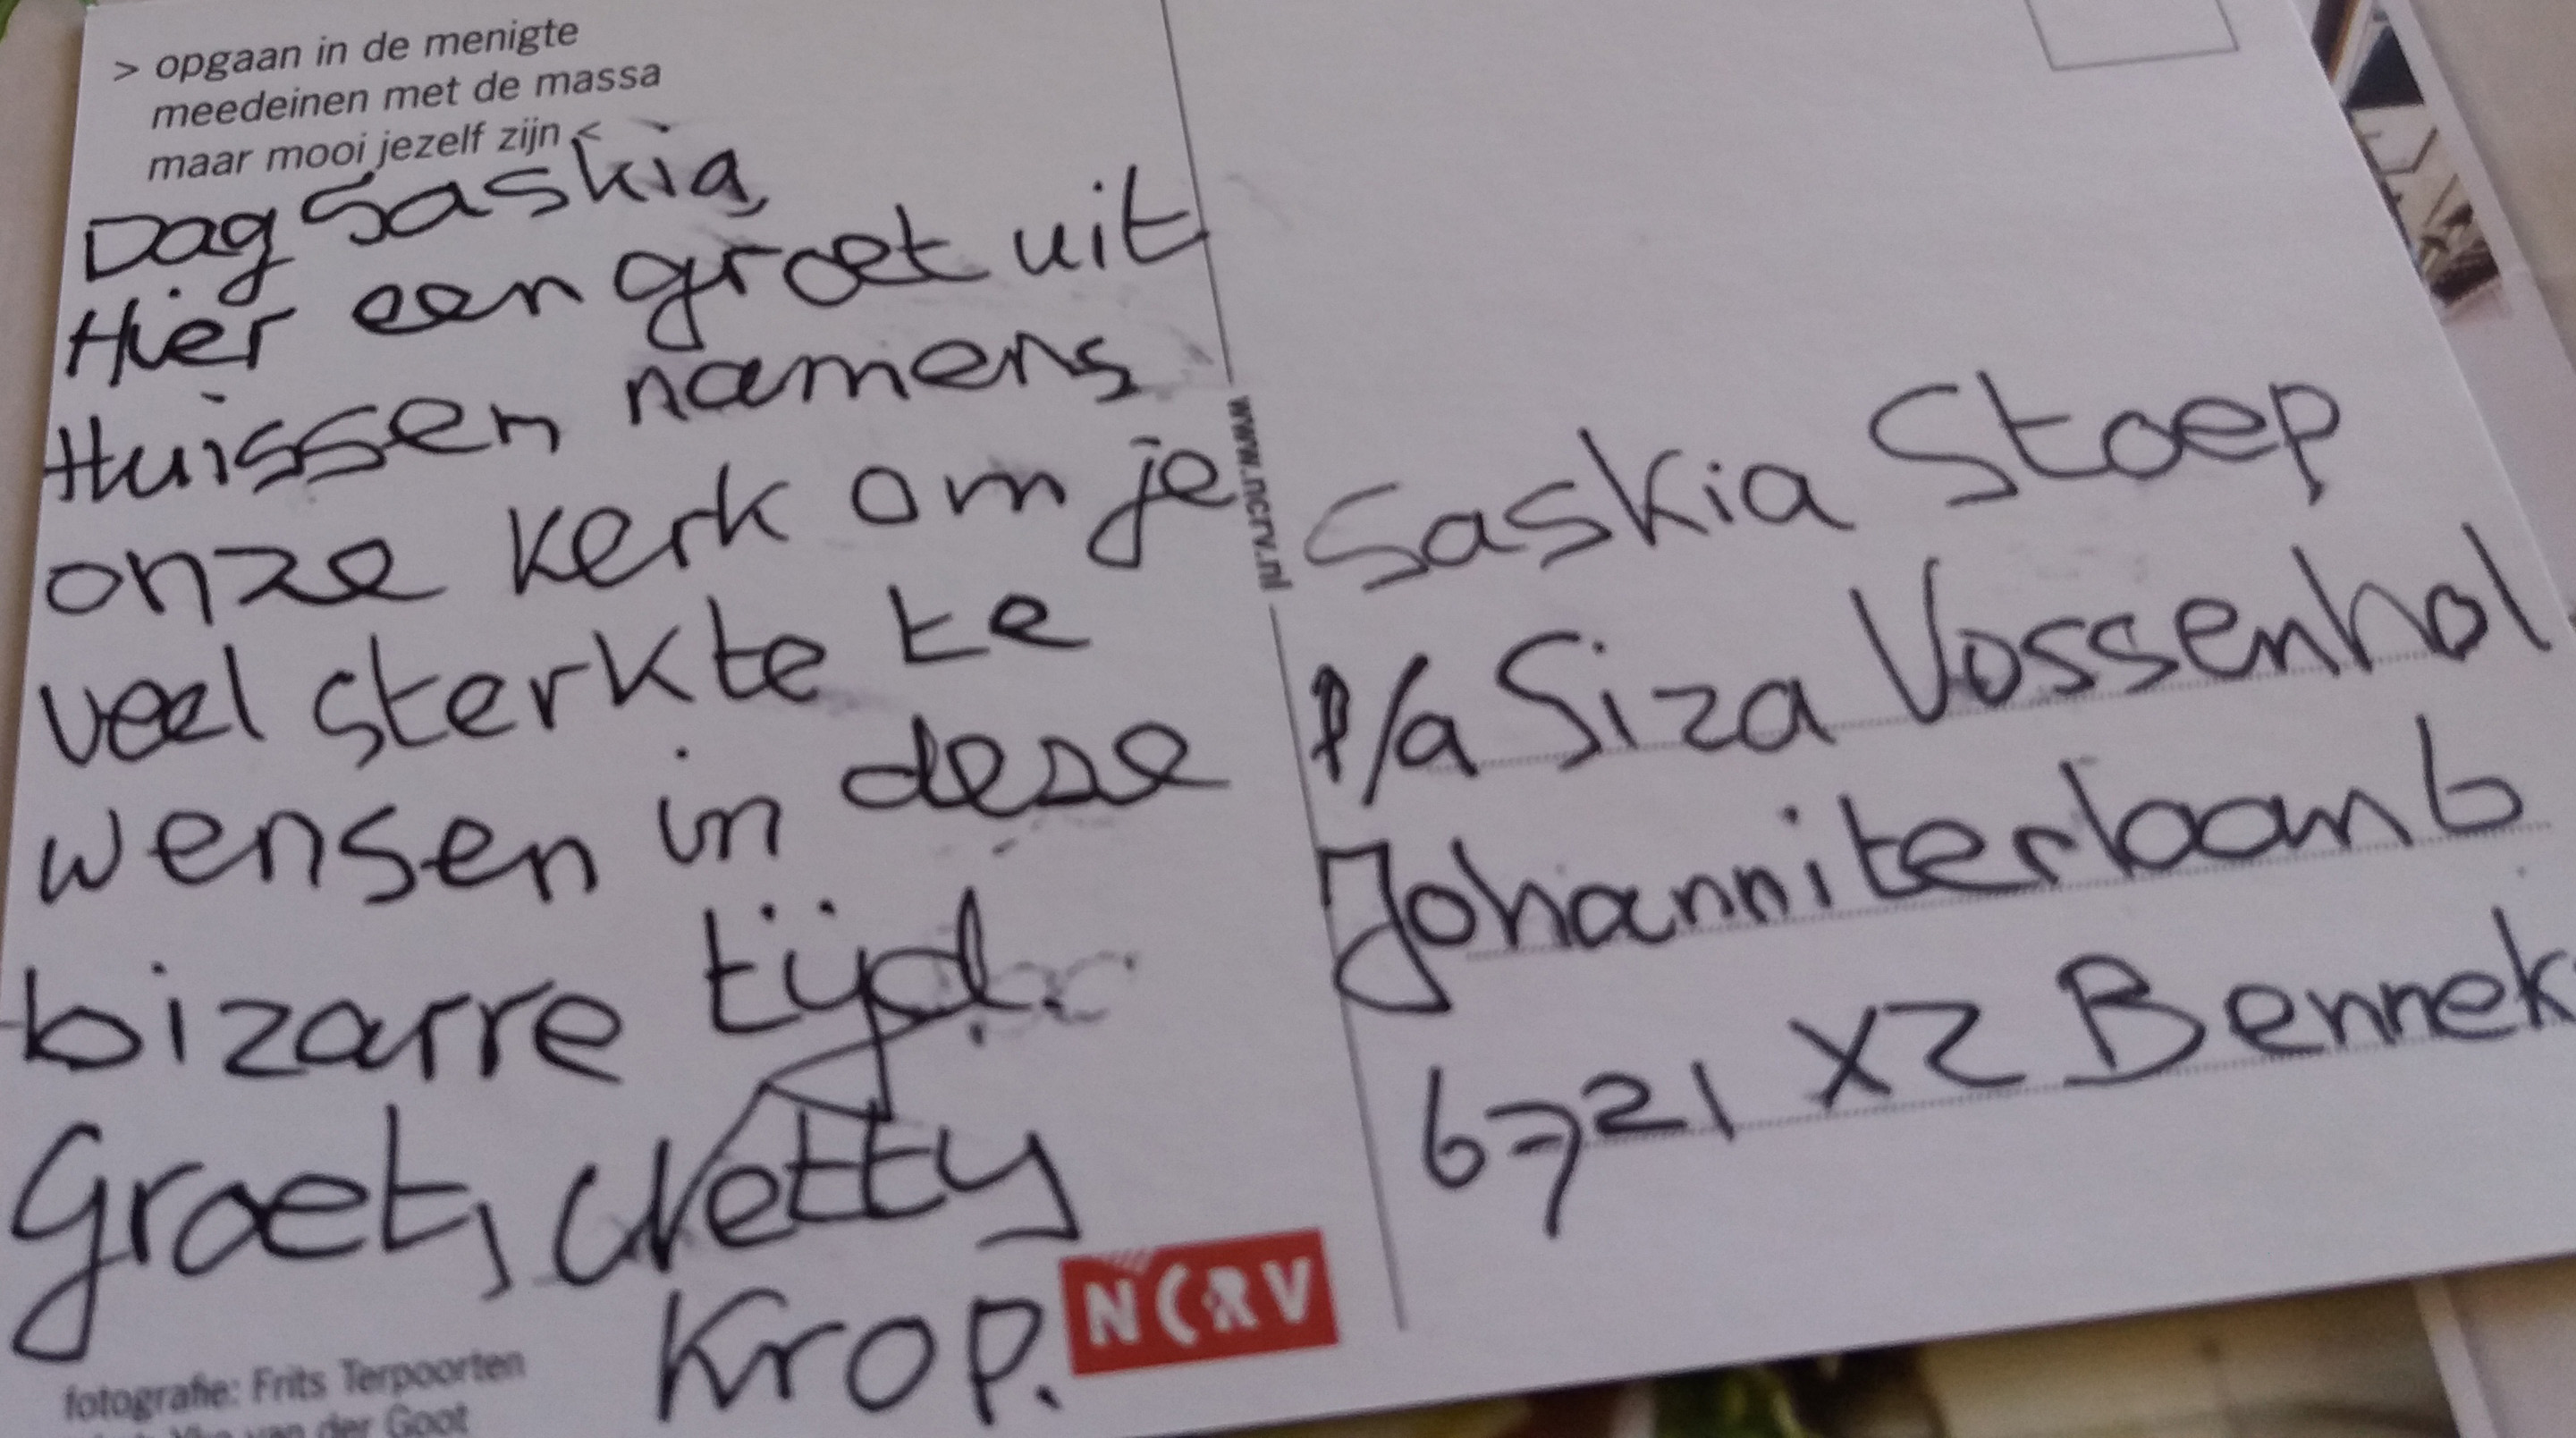 > opgaan in de menigte
meedeinen met de massa
maar mooi jezelf zijn <
Dag Saskia,
Hier een groet uit
Huissen namens
onze kerk om je
veel sterkte te
wensen in deze
bizarre tijd.
Groet, Netty
Krop.
NCRV
fotografie: Frits Terpoorten
van der Goot
www.ncrv.nl
Saskia Stoep
P/a Siza Vossenhol
Johanniterlaan 6
6721 XZ Bennek